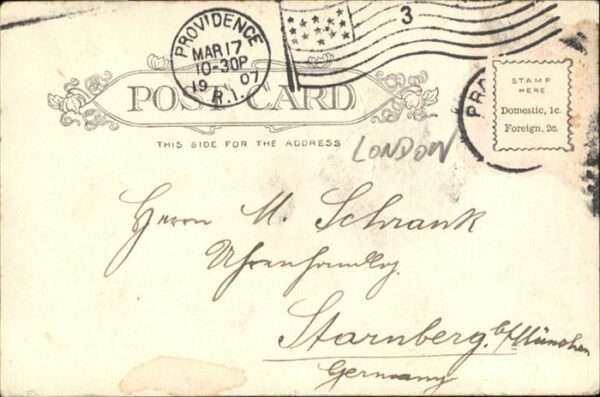 PROVIDENCE
MAR 17
10-30P
19 07
R.I.
3
POST CARD
THIS SIDE FOR THE ADDRESS
PRO
STAMP
HERE
Domestic, 1c.
Foreign, 2c.
LONDON
Herrn M. Schrank
Uhrenhandlg.
Starnberg b/München
Germany